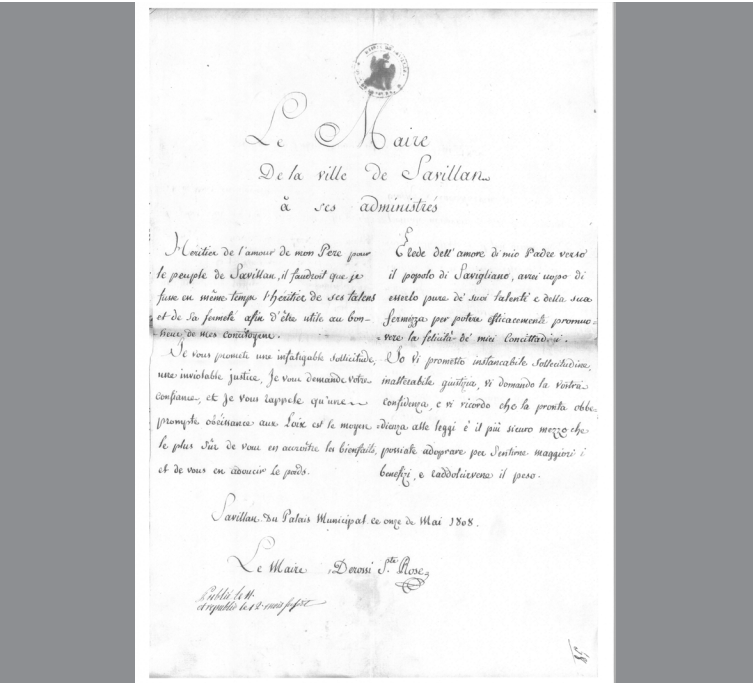 Le Maire
De la ville de Savillan
à ses administrés
Heritier de l'amour de mon Pere pour
le peuple de Savillan, il faudroit que je
fusse en même temps l'heritier de ses talens
et de sa fermeté afin d'être utile au bon-
heur de mes concitoyens.
Je vous promets une infatigable sollicitude,
une inviolable justice, Je vous demande votre
confiance, et Je vous rappele qu'une
prompte obéissance aux Loix est le moyen
le plus sûr de vous en accroitre les bienfaits,
et de vous en adoucir le poids.
Erede dell'amore di mio Padre verso
il popolo di Savigliano, avrei uopo di
esserlo pure de' suoi talenti e della sua
fermezza per potere efficacemente promuo-
vere la felicità de' miei Concittadini.
Io vi prometto instancabile sollecitudine,
inalterabile giustizia, vi domando la vostra
confidenza, e vi ricordo che la pronta obbe-
dienza alle leggi è il più sicuro mezzo che
possiate adoprare per sentirne maggiori i
benefizj, e raddolcirvene il peso.
Savillan du Palais Municipal ce onze de Mai 1808.
Le Maire Derossi S.te Rose
Publié le 11.
et republié le 12